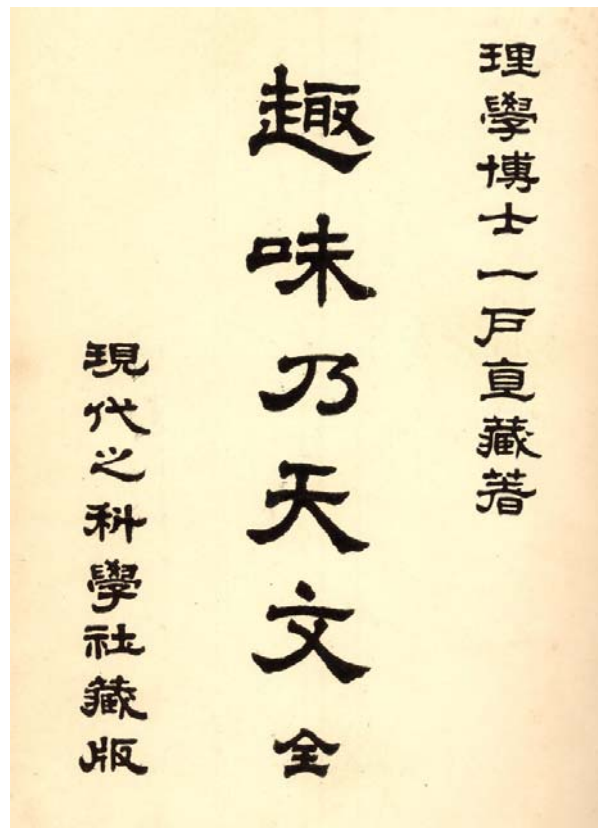 理學博士一戶直藏著
趣味乃天文全
現代之科學社藏版